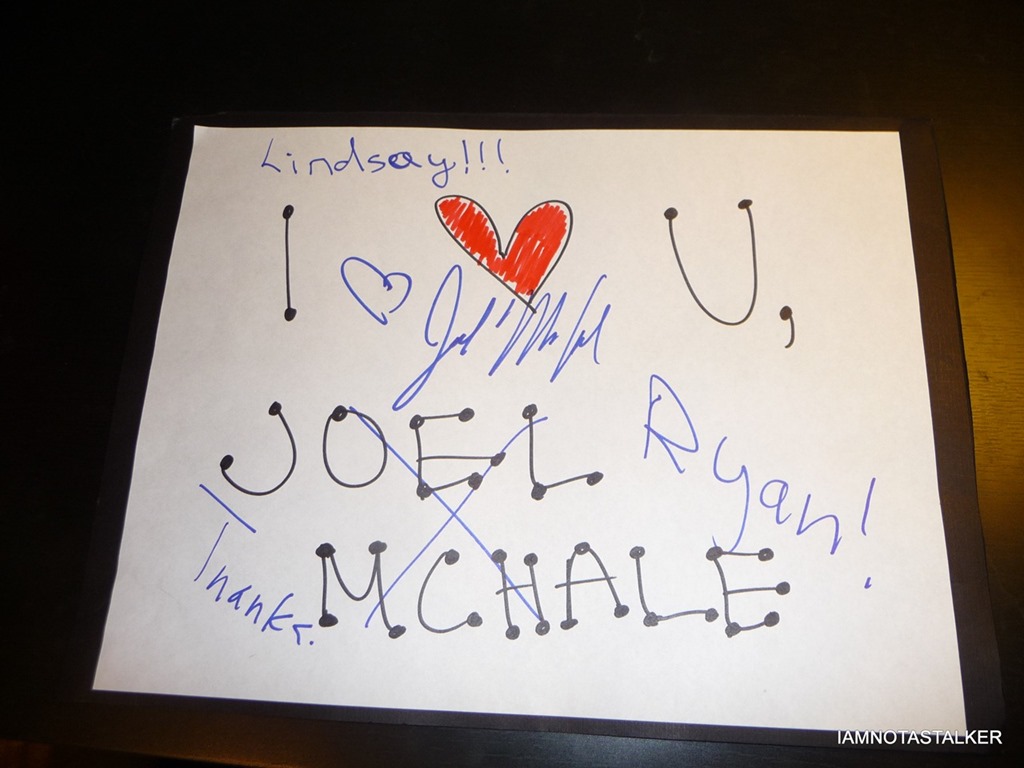 Lindsay!!!
I ♥ U,
♡ Joel McHale
JOEL
Ryan!
Thanks.
MCHALE
IAMNOTASTALKER